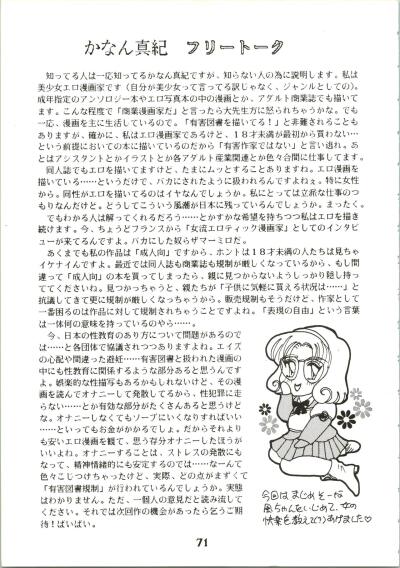 かなん真紀　フリートーク
知ってる人は一応知ってるかなん真紀ですが、知らない人の為に説明します。私は
美少女エロ漫画家です（自分が美少女って言ってる訳じゃなく、ジャンルとしての）。
成年指定のアンソロジー本やエロ写真本の中の漫画とか、アダルト商業誌でも描いて
ます。こんな程度で「商業漫画家だ」と言ったら大先生方に怒られちゃうかな。でも
一応、漫画を主に生活しているので。「有害図書を描いてる！」と非難されることも
ありますが、確かに、私はエロ漫画家であるけど、１８才未満が最初から買わない…
という前提においての本に描いているのだから“有害作家ではない”と言い逃れ。あ
とはアシスタントとかイラストとか各アダルト産業関連とか色々合間に仕事してます。
同人誌でもエロを描いてますけど、たまにムッとすることありますね。エロ漫画を
描いている……というだけで、バカにされたように扱われるんですよねぇ。特に女性
から。同性がエロを描いてるのはイヤなんでしょうか。私にとっては立派な仕事のつ
もりなんだけど。どうしてこういう風潮が日本に残っているんでしょうか。まったく。
でもわかる人は解ってくれるだろう……とかすかな希望を持ちつつ私はエロを描き
続けます。今、ちょうどフランスから「女流エロティック漫画家」としてのインタビ
ューが来てるんですよ。バカにした奴らザマーミロだ。
あくまでも私の作品は「成人向」ですから、ホントは１８才未満の人たちは見ちゃ
イケナイんですよ。最近では同人誌も商業誌も規制が厳しくなっているから、もし間
違って「成人向」の本を買ってしまったら、親に見つからないようしっかり隠し持っ
ててくださいね。見つかっちゃうと、親たちが「子供に気軽に買える状況は……」と
抗議してきて更に規制が厳しくなっちゃうから。販売規制もそうだけど、作家として
一番困るのは作品に対して規制されちゃうことですよね。「表現の自由」という言葉
は一体何の意味を持っているのやら……。
今、日本の性教育のあり方について問題があるので
は……と各団体で協議されつつありますよね。エイズ
の心配や間違った避妊……有害図書と扱われた漫画の
中にも性教育に関係するような部分あると思うんです
よ。娯楽的な性描写もあるかもしれないけど、その漫
画を読んでオナニーして発散してるから、性犯罪に走
らない……とか有効な部分がたくさんあると思うけど
な。オナニーしなくてもソープにいくなりすればいい
……といってもお金がかかるでしょ。だからそれより
も安いエロ漫画を観て、思う存分オナニーしたほうが
いいよね。オナニーすることは、ストレスの発散にも
なって、精神情緒的にも安定するのでは……なーんて
色々こじつけちゃったけど、実際、どの点がまずくて
「有害図書規制」が行われているんでしょうか。実態
はわかりません。ただ、一個人の意見だと読み流して
ください。それでは次回作の機会があったら乞うご期
待！ばいばい。
今回はまじめそーな
風ちゃんをいじめて、女の
快楽を教えてつあげました♡
71